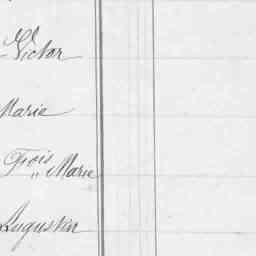 Victor
Marie
Frois
" Marie
Augustin